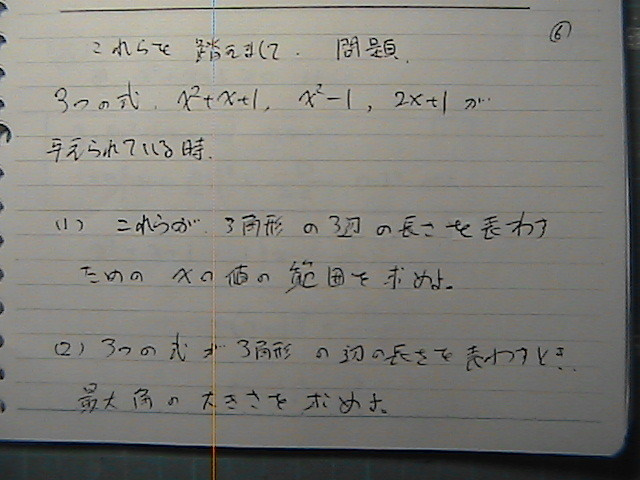 ⑥
これらを踏えまして. 問題.
3つの式. x²+x+1, x²-1, 2x+1 が
与えられている時.
(1) これらが. 3角形の3辺の長さを表わす
ためのxの値の範囲を求めよ。
(2) 3つの式が3角形の3辺の長さを表わすとき.
最大角の大きさを求めよ。